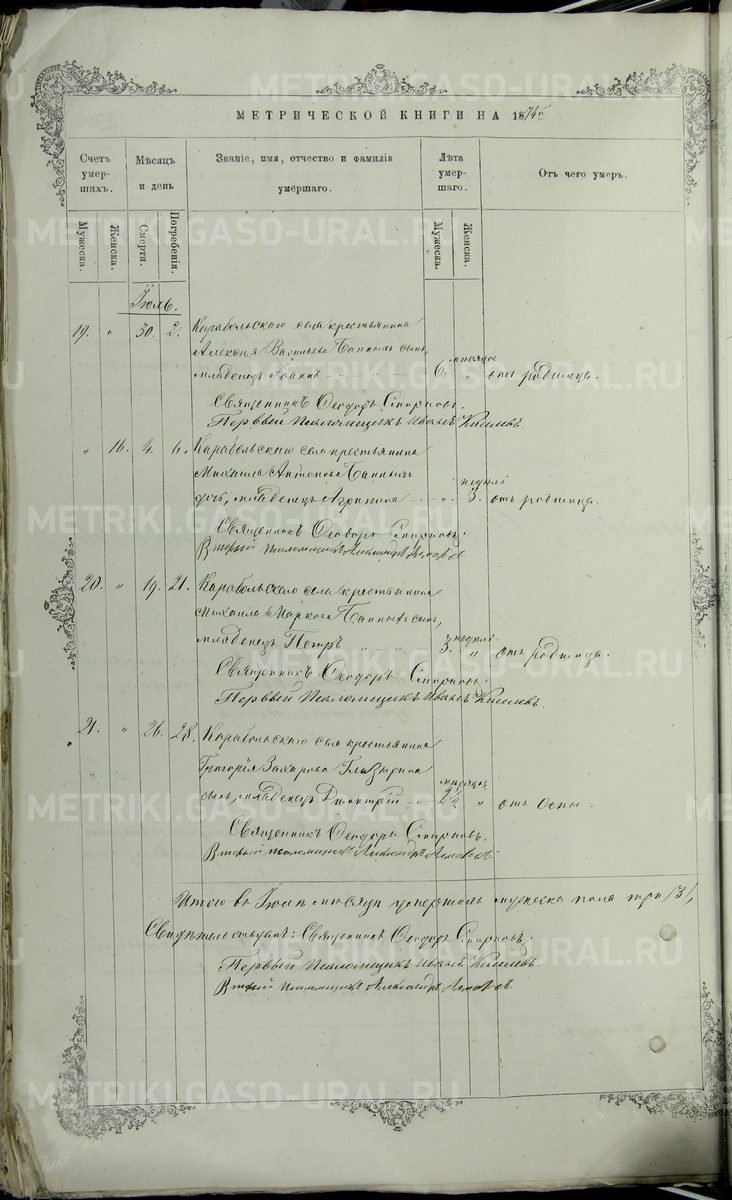 METRIKI.GASO-URAL.RU
МЕТРИЧЕСКОЙ КНИГИ НА 1874 г.
Счетъ умершихъ.
Мѣсяцъ и день
Званіе, имя, отчество и фамилія умершаго.
Лѣта умершаго.
Отъ чего умеръ.
Мужеска.
Женска.
Смерти.
Погребенія.
Мужеска.
Женска.
Іюль.
19. " 30. 2. Карабольскаго села крестьянина
Алексѣя Васильева Банныхъ сынъ,
младенецъ Іоаннъ 6. мѣсяцовъ " отъ родимца.
Священникъ Ѳеодоръ Смирновъ.
Первый Псаломщикъ Иванъ Киселевъ.
" 16. 4. 6. Карабольскаго села крестьянина
Михаила Антонова Банныхъ
дочь, младенецъ Агрипина " 3. недѣль отъ родимца.
Священникъ Ѳеодоръ Смирновъ.
Второй псаломщикъ Александръ
20. " 19. 21. Карабольскаго села крестьянина
Михаила Маркова Банныхъ сынъ,
младенецъ Петръ " " 3. недѣль " отъ родимца.
Священникъ Ѳеодоръ Смирновъ.
Первый Псаломщикъ Иванъ Киселевъ.
21. " 26. 28. Карабольскаго села крестьянина
Григорія Захарова Глазырина
сынъ, младенецъ Димитрій 2½ мѣсяцовъ " отъ оспы.
Священникъ Ѳеодоръ Смирновъ.
Второй псаломщикъ Александръ
Итого въ Іюлѣ мѣсяцѣ умершихъ мужеска пола три /3/,
Свидѣтельствуемъ: Священникъ Ѳеодоръ Смирновъ.
Первый Псаломщикъ Иванъ Киселевъ.
Второй псаломщикъ Александръ